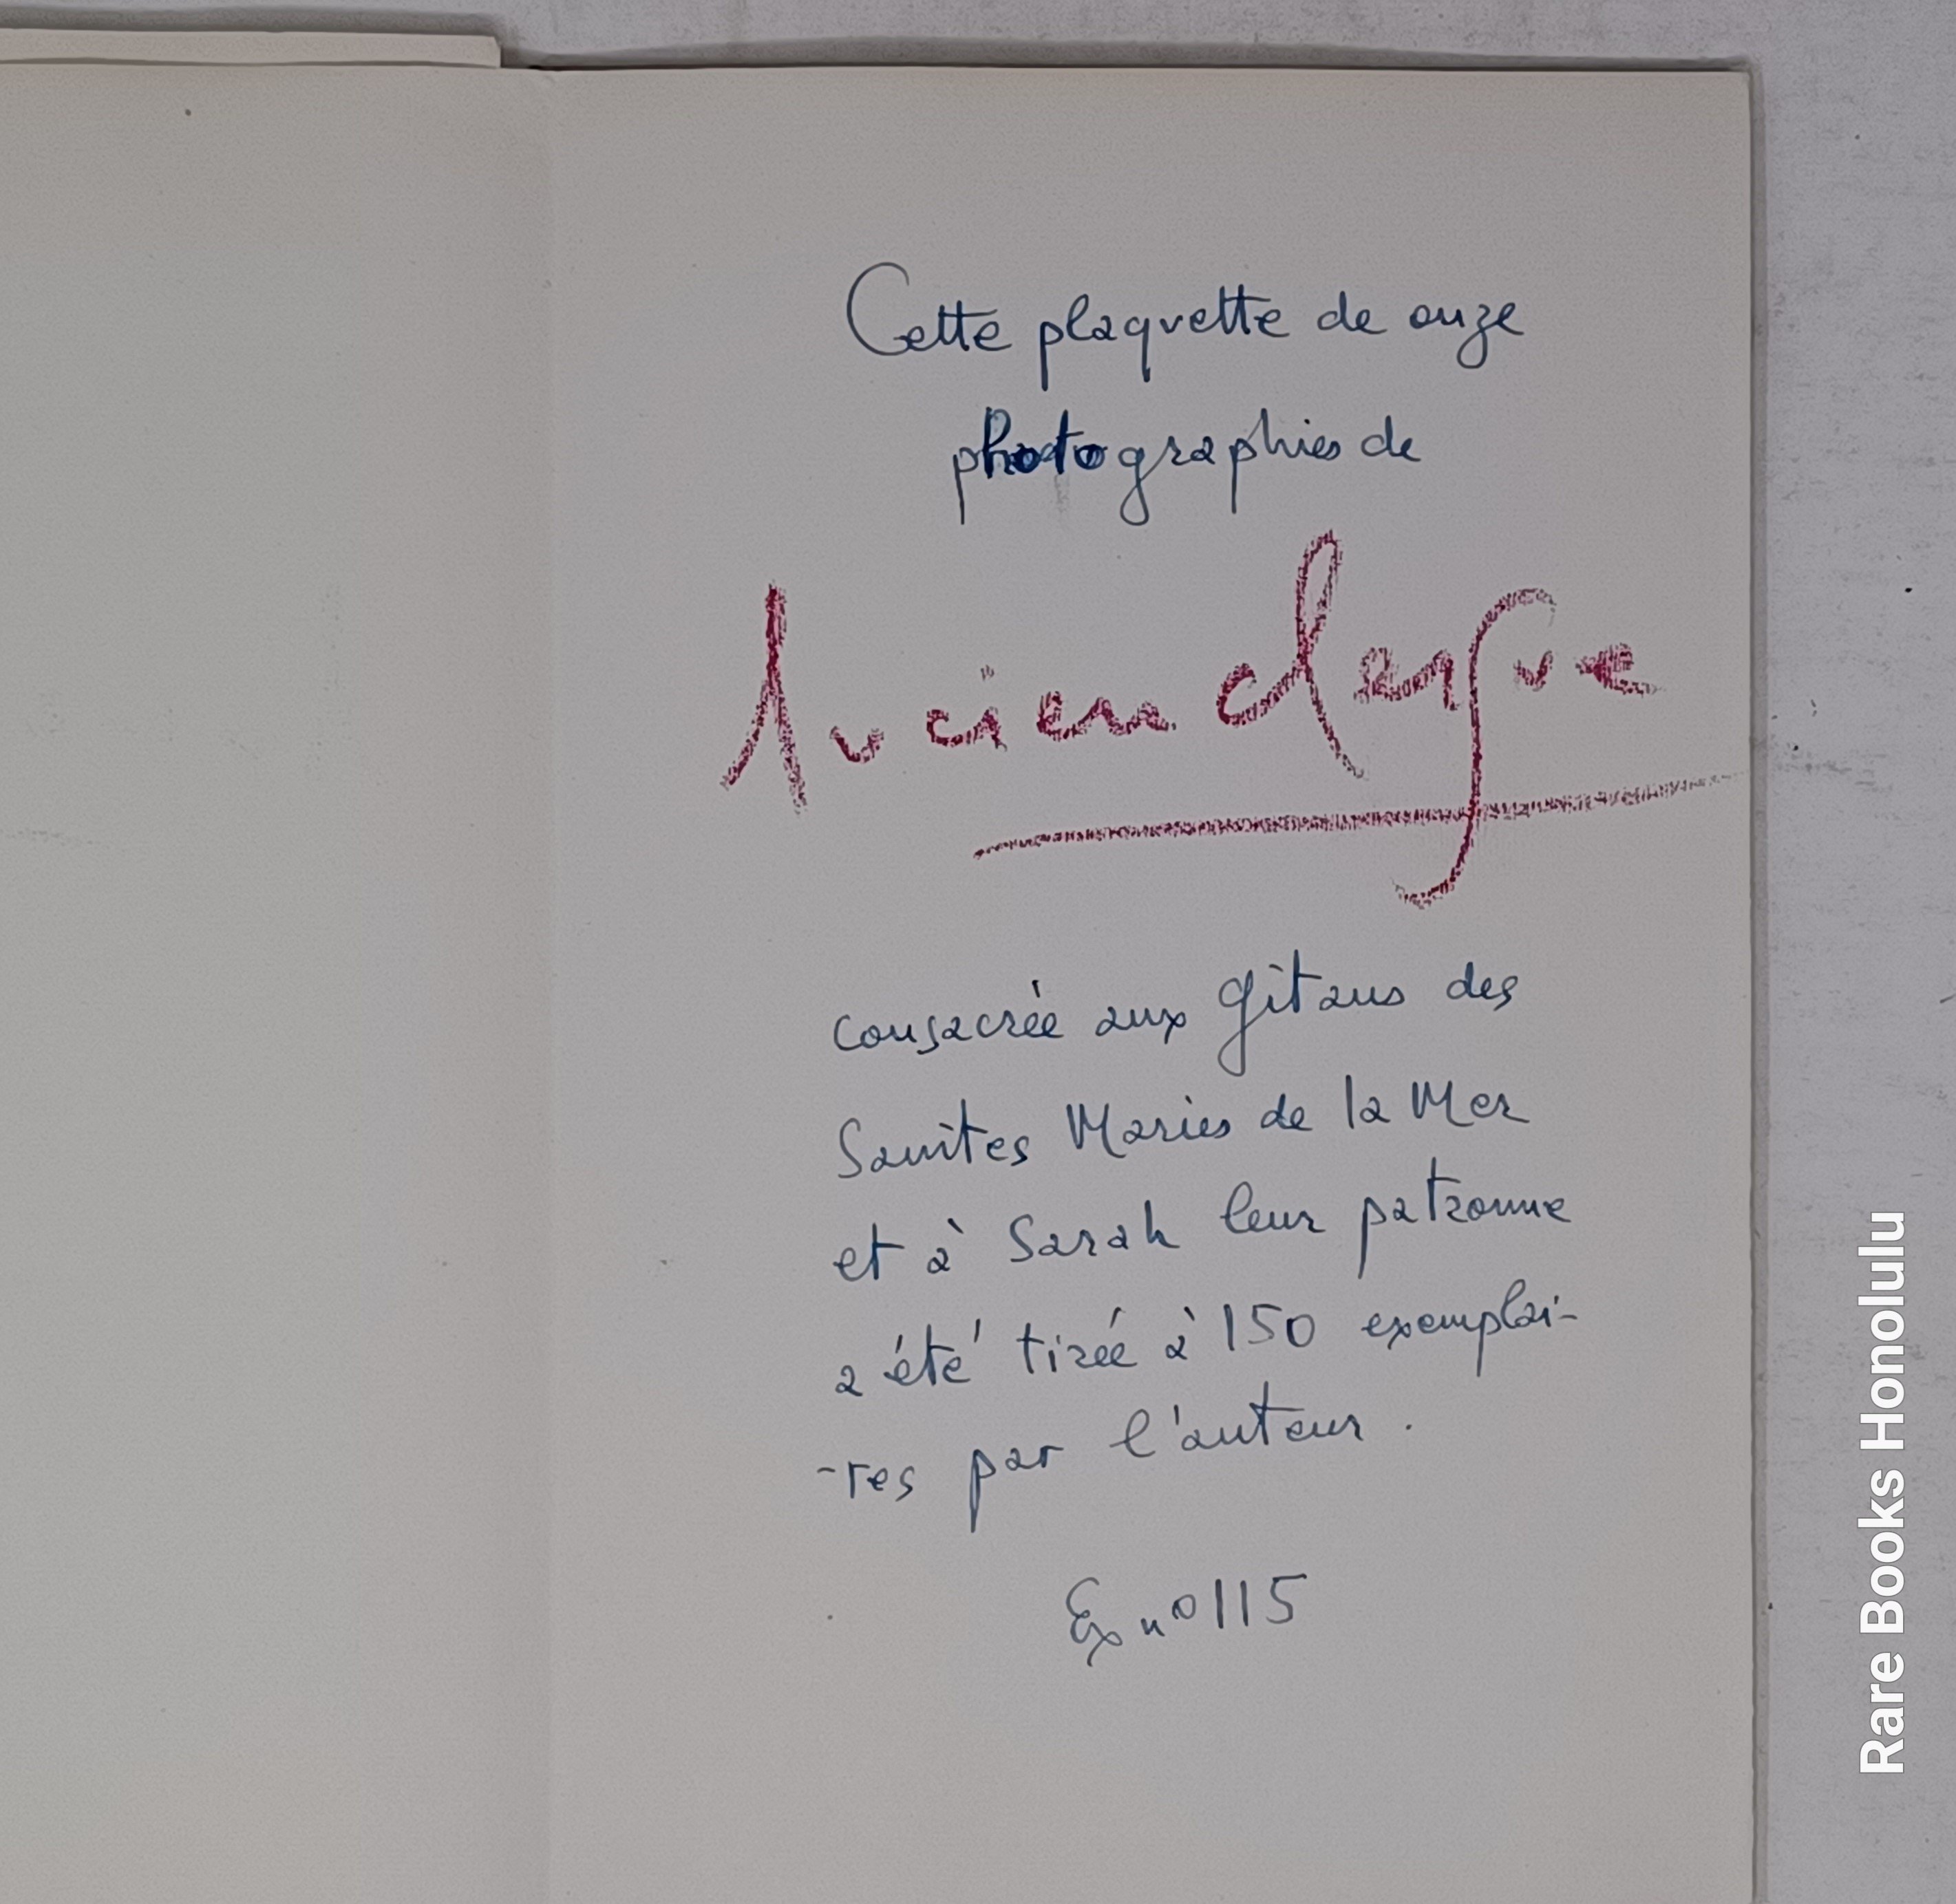 Cette plaquette de onze
photographies de
lucien clergue
consacrée aux gitans des
Saintes Maries de la Mer
et à Sarah leur patronne
a été tirée à 150 exemplai-
-res par l'auteur.
Ex nº 115
Rare Books Honolulu